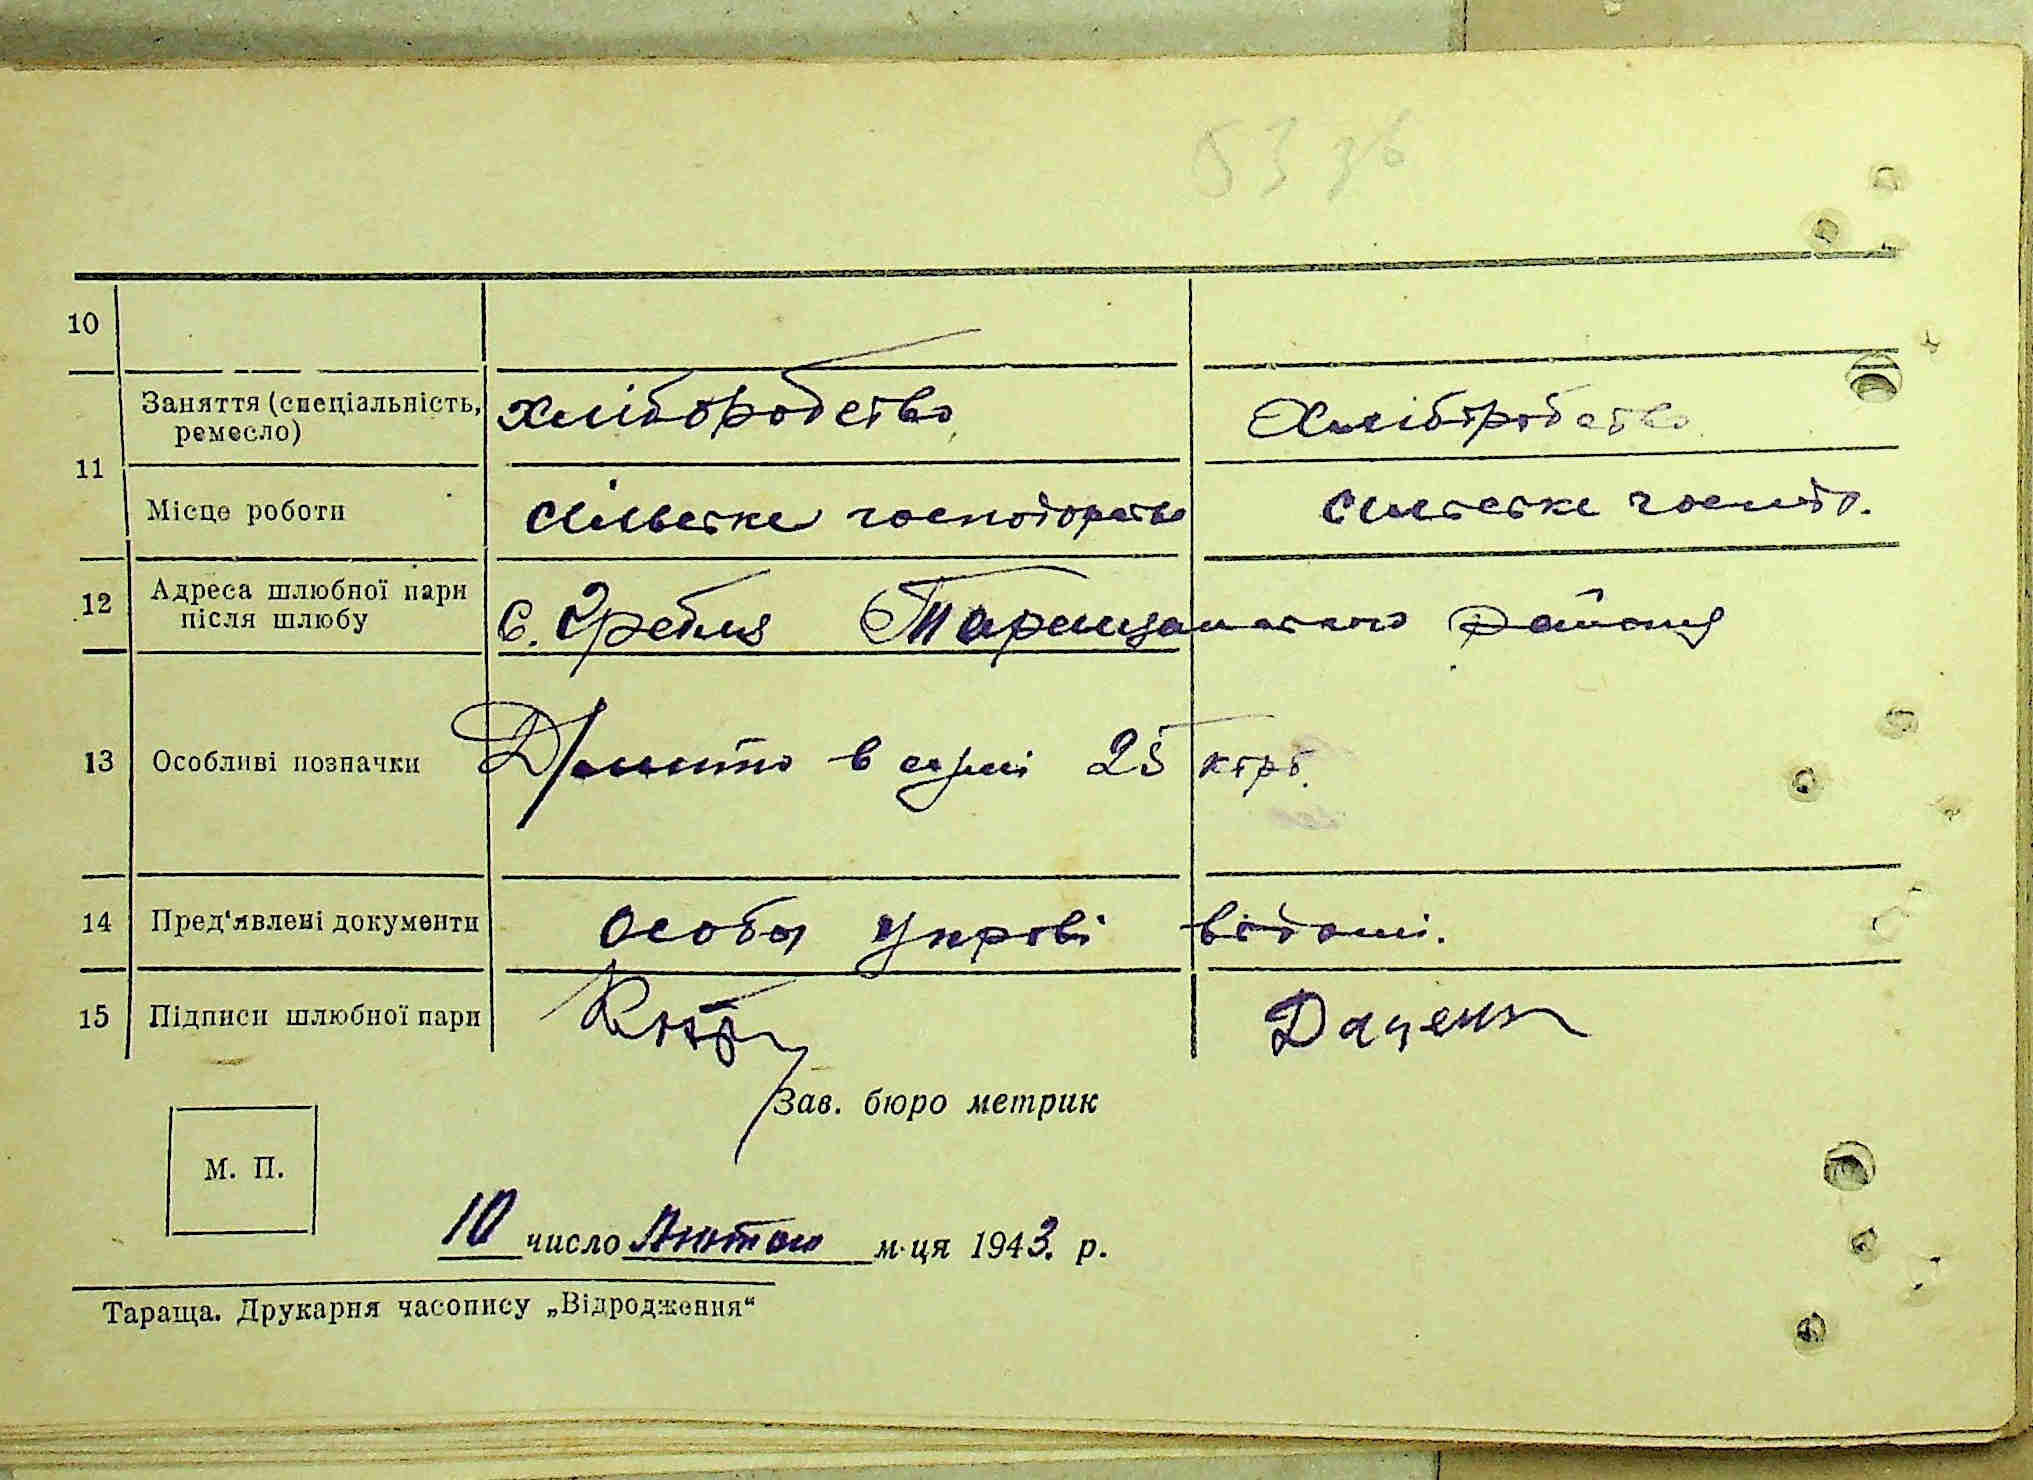 53 зв
10
Заняття (спеціальність, хліборобство Хліборобство
ремесло)
11
Місце роботи сільське господарство сільське господ.
12 Адреса шлюбної пари
після шлюбу с. Гребля Таращанського району
13 Особливі позначки в сумі 25 крб.
14 Пред'явлені документи особи управі відомі.
15 Підписи шлюбної пари Даценко
Зав. бюро метрик
М. П.
10 число Лютого м-ця 1943. р.
Тараща. Друкарня часопису „Відродження“